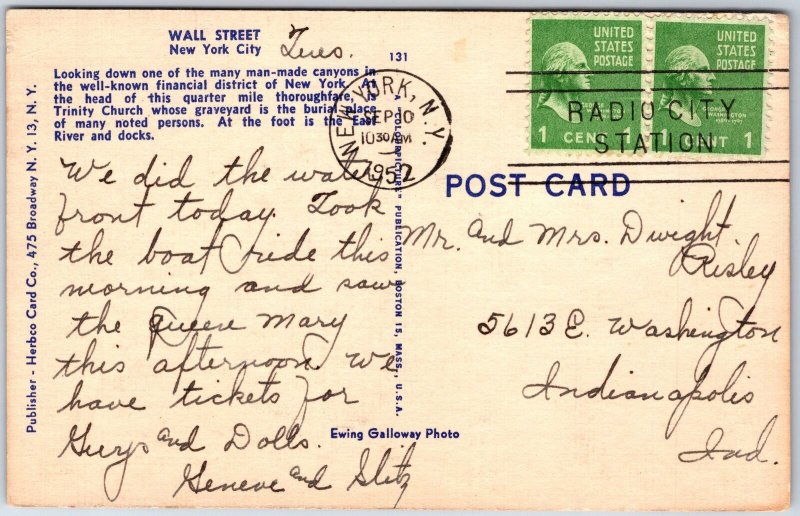 WALL STREET
New York City
Tues.
131
Looking down one of the many man-made canyons in
the well-known financial district of New York. At
the head of this quarter mile thoroughfare, is
Trinity Church whose graveyard is the burial place
of many noted persons. At the foot is the East
River and docks.
We did the water
front today. Took
the boat ride this
morning and saw
the Queen Mary
this afternoon. We
have tickets for
Guys and Dolls.
Geneve and Slitz
Publisher - Herbco Card Co., 475 Broadway N. Y. 13, N. Y.
A "COLORPICTURE" PUBLICATION, BOSTON 15, MASS., U.S.A.
Ewing Galloway Photo
NEW YORK, N.Y.
SEP 10
10 30 AM
1952
UNITED
STATES
POSTAGE
GEORGE
WASHINGTON
1 CENT
UNITED
STATES
POSTAGE
GEORGE
WASHINGTON
1 CENT 1
RADIO CITY
STATION
POST CARD
Mr. and Mrs. Dwight
Risley
5613 E. Washington
Indianapolis
Ind.